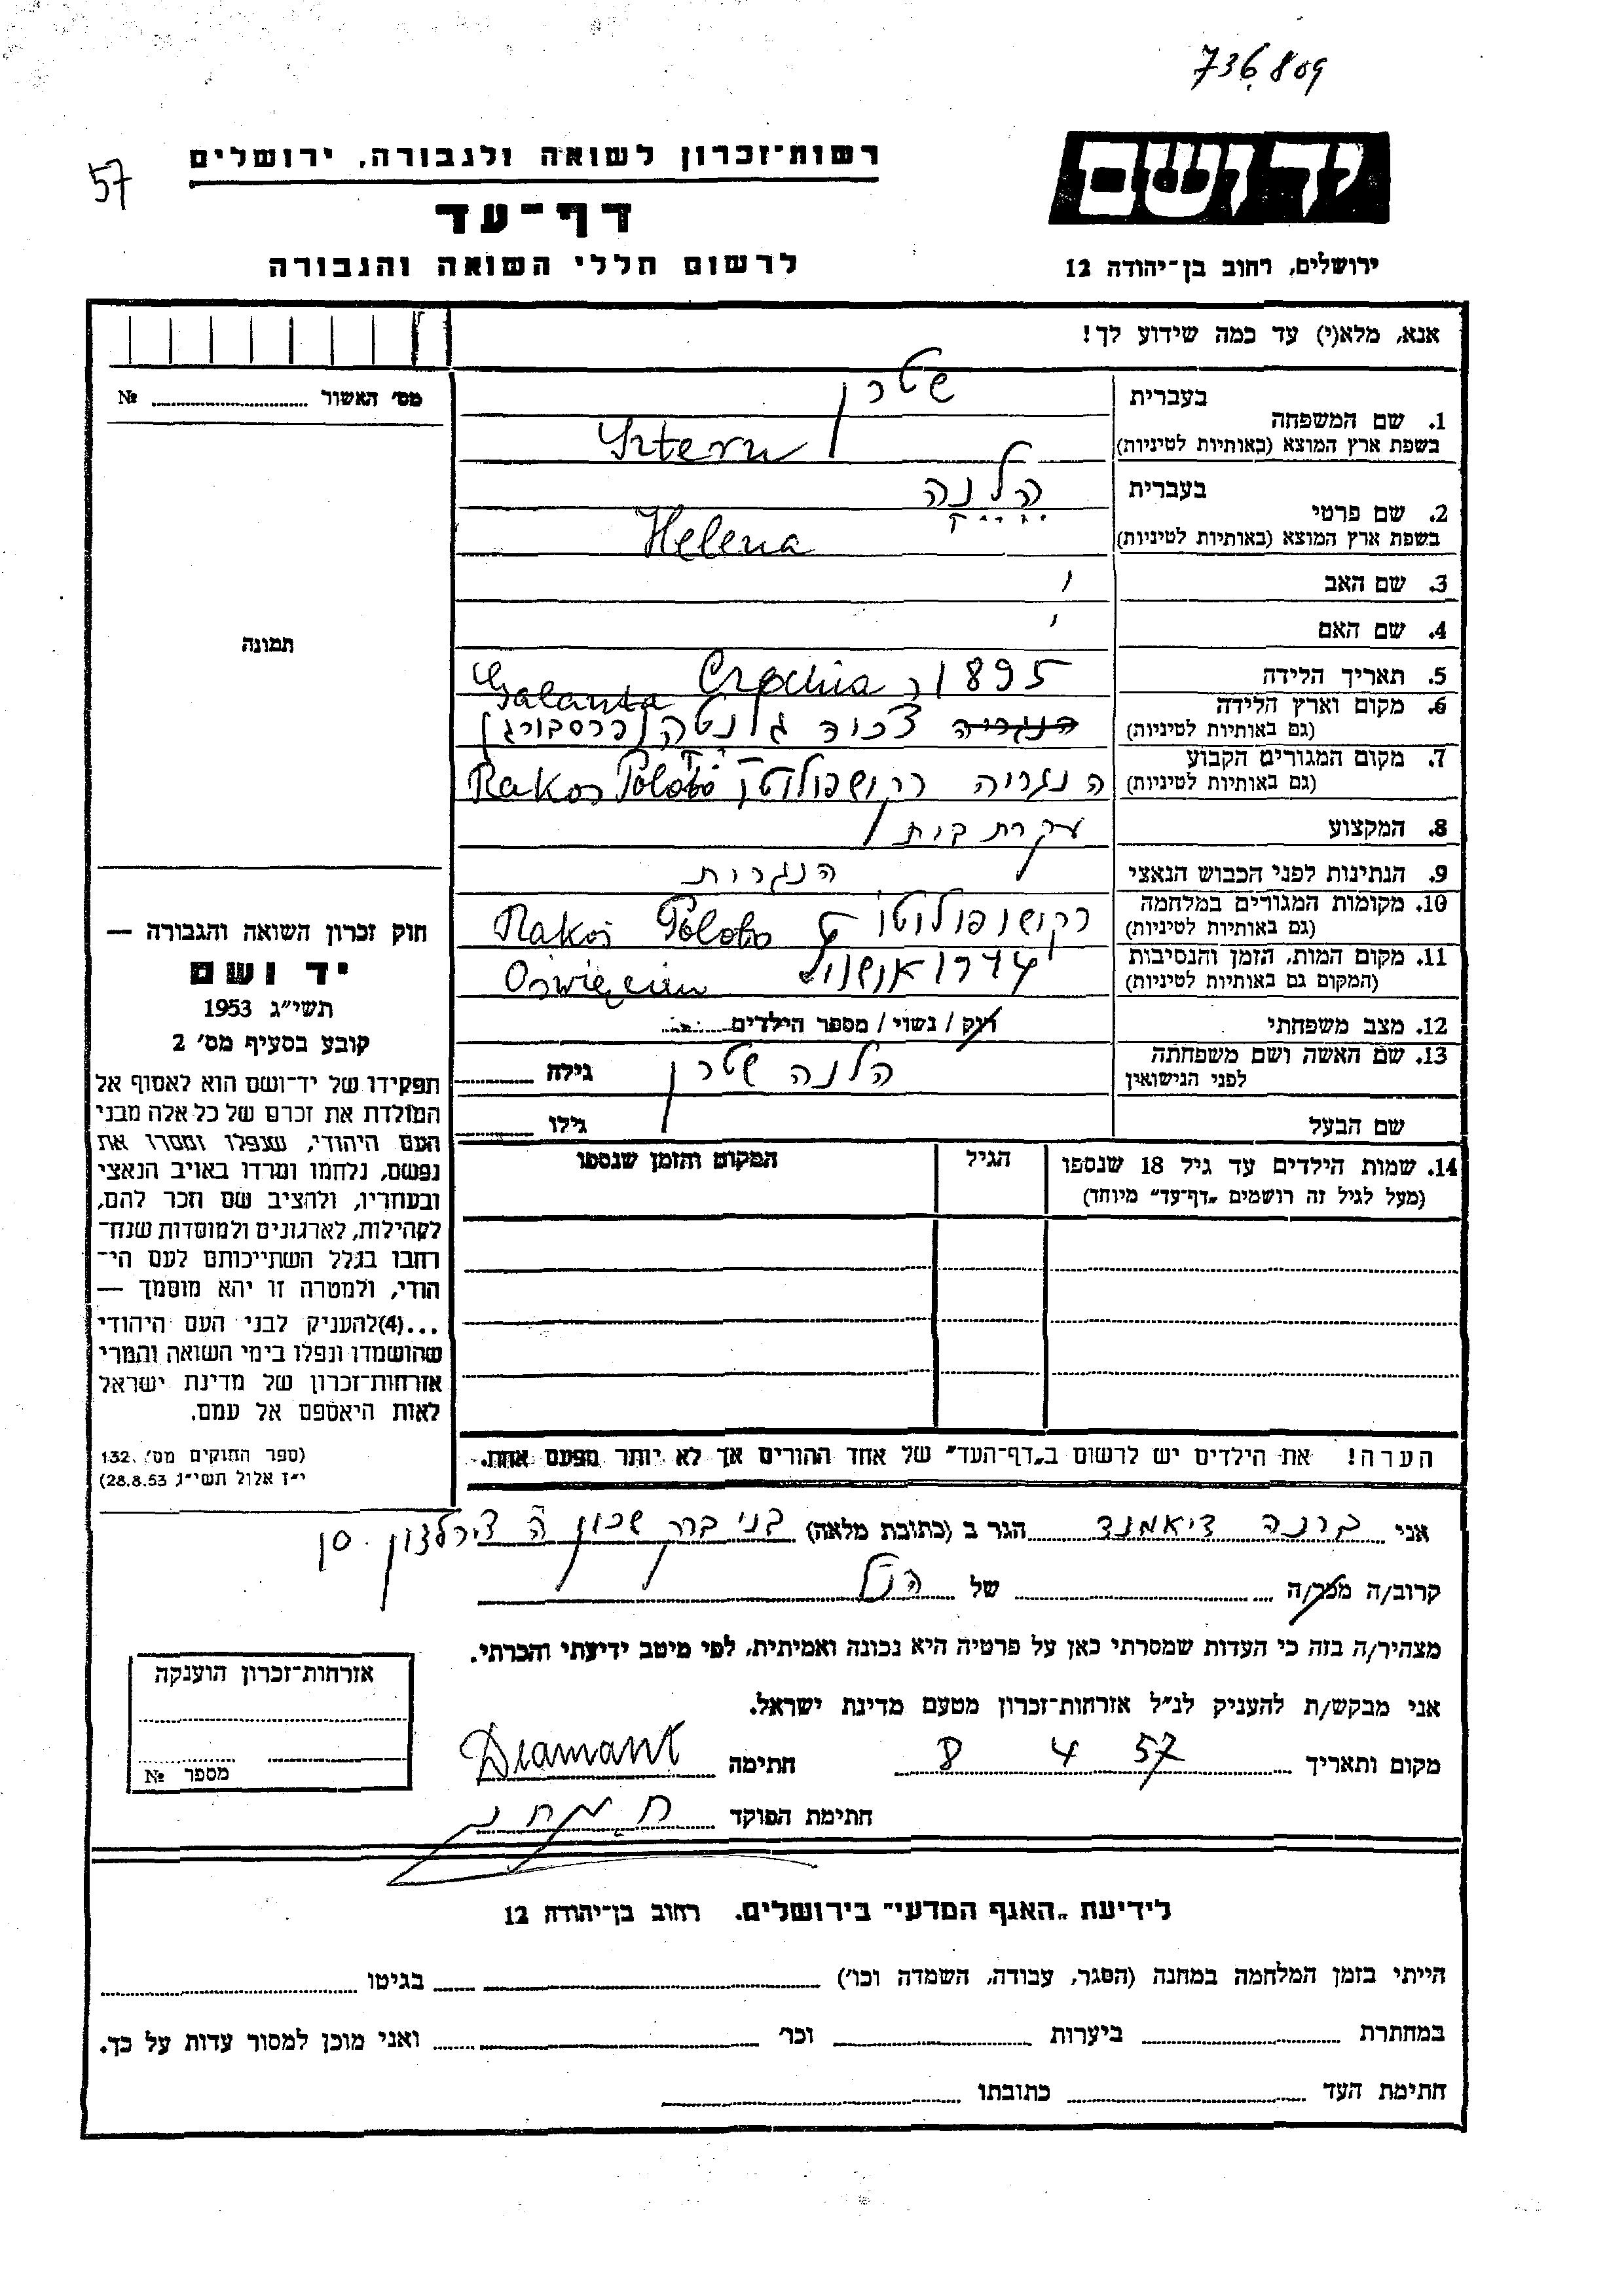 736809
57
רשות־זכרון לשואה ולגבורה, ירושלים
יד ושם
דף־עד
לרשום חללי השואה והגבורה
ירושלים, רחוב בן־יהודה 12
אנא, מלא(י) עד כמה שידוע לך!
מס׳ האשור № 
תמונה
1. שם המשפחה
בעברית
שטרן
בשפת ארץ המוצא (באותיות לטיניות)
Sztern
2. שם פרטי
בעברית
הלנה
בשפת ארץ המוצא (באותיות לטיניות)
Helena
3. שם האב
4. שם האם
5. תאריך הלידה
1895
6. מקום וארץ הלידה
(גם באותיות לטיניות)
Galanta
הנגריה צ׳כיה גלנטה (פרסבורג)
7. מקום המגורים הקבוע
(גם באותיות לטיניות)
הנגריה
Rakos
8. המקצוע
עקרת בית
9. הנתינות לפני הכבוש הנאצי
הנגרית
10. מקומות המגורים במלחמה
(גם באותיות לטיניות)
Rakos
11. מקום המות, הזמן והנסיבות
(המקום גם באותיות לטיניות)
Oświęcim
12. מצב משפחתי
רוק / נשוי / מספר הילדים
13. שם האשה ושם משפחתה
לפני הנישואין
הלנה שטרן
גילה
שם הבעל
גילו
14. שמות הילדים עד גיל 18 שנספו
(מעל לגיל זה רושמים „דף־עד״ מיוחד)
הגיל
המקום והזמן שנספו
חוק זכרון השואה והגבורה —
יד ושם
תשי״ג 1953
קובע בסעיף מס׳ 2
תפקידו של יד־ושם הוא לאסוף אל
המולדת את זכרם של כל אלה מבני
העם היהודי, שנפלו ומסרו את
נפשם, נלחמו ומרדו באויב הנאצי
ובעוזריו, ולהציב שם וזכר להם,
לקהילות, לארגונים ולמוסדות שנח־
רבו בגלל השתייכותם לעם הי־
הודי, ולמטרה זו יהא מוסמך —
...(4)להעניק לבני העם היהודי
שהושמדו ונפלו בימי השואה והמרי
אזרחות־זכרון של מדינת ישראל
לאות היאספם אל עמם.
(ספר החוקים מס׳ 132.
י״ז אלול תשי״ג 28.8.53)
הערה! את הילדים יש לרשום ב„דף־העד״ של אחד ההורים אך לא יותר מפעם אחת.
אני ברנה דיאמנד הגר ב (כתובת מלאה) בני ברק שכון ה
קרוב/ה מכר/ה של הנ״ל
מצהיר/ה בזה כי העדות שמסרתי כאן על פרטיה היא נכונה ואמיתית, לפי מיטב ידיעתי והכרתי.
אני מבקש/ת להעניק לנ״ל אזרחות־זכרון מטעם מדינת ישראל.
מקום ותאריך 8 4 57 חתימה Diamant
חתימת הפוקד
אזרחות־זכרון הוענקה
מספר №
לידיעת „האגף המדעי״ בירושלים, רחוב בן־יהודה 12
הייתי בזמן המלחמה במחנה (הסגר, עבודה, השמדה וכו׳) בגיטו
במחתרת ביערות וכו׳ ואני מוכן למסור עדות על כך.
חתימת העד כתובתו